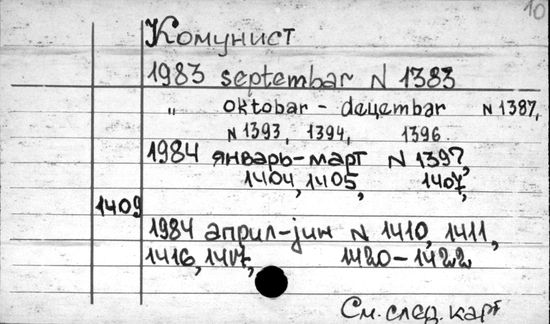 10
Комунист
1983 septembar N 1383
" oktobar - deцembar N 1387,
N 1393, 1394, 1396.
1984 январь-март N 1397,
1404, 1405, 1407,
1409
1984 април-јин N 1410, 1411,
1416, 1417, 1420-1422
См. след. карт